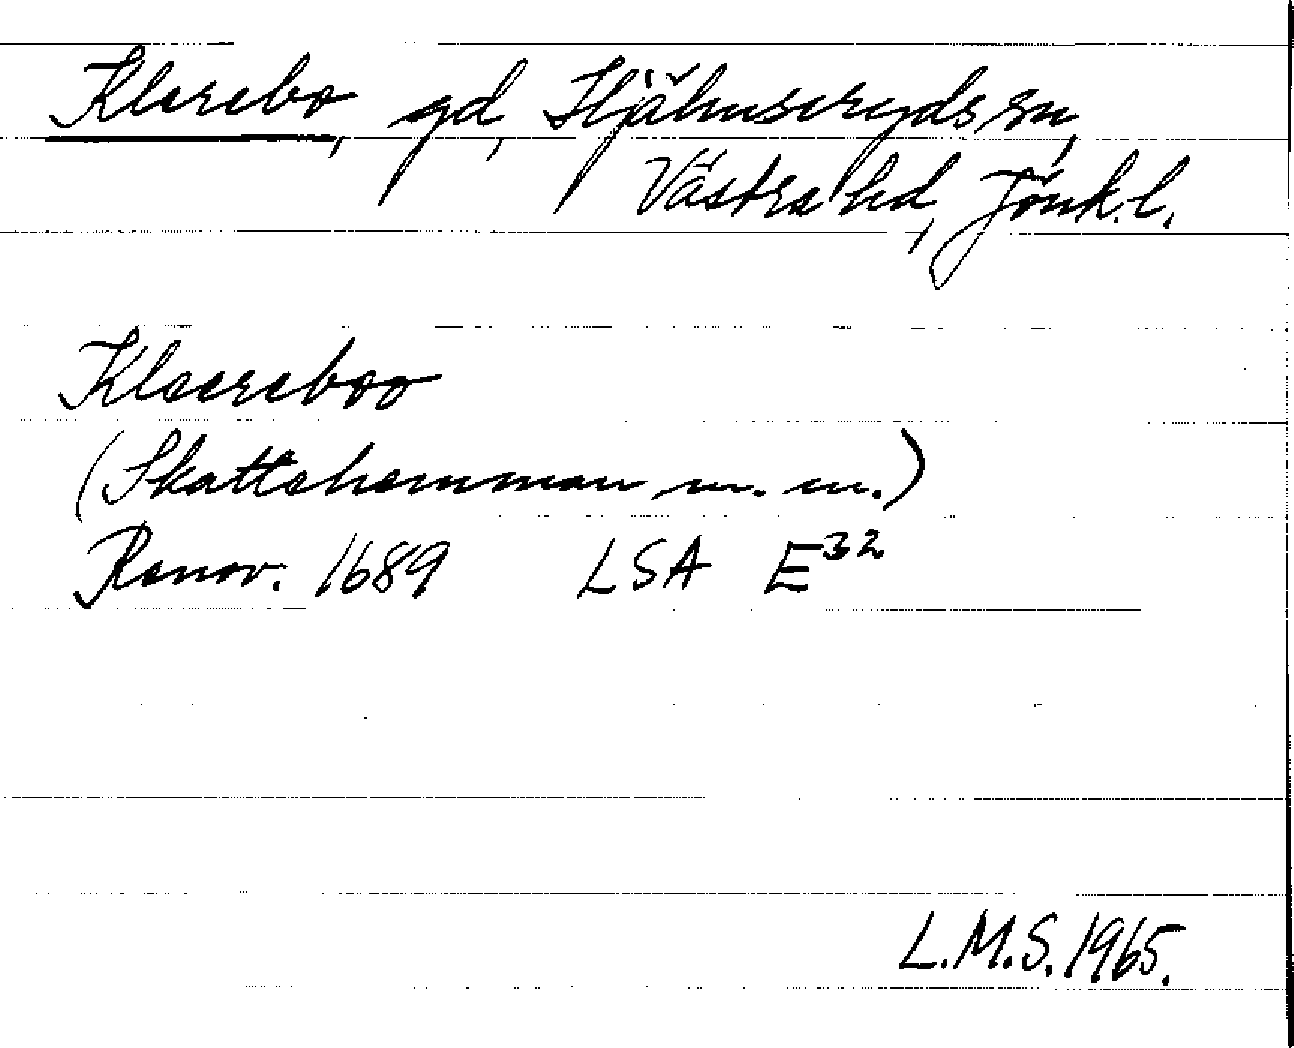 Klarebo, gd, Hjälmseryds sn,
Västra hd, Jönk. l.
Klaereboo
(Skattehemman m. m.)
Renov. 1689 LSA E32
L.M.S. 1965.